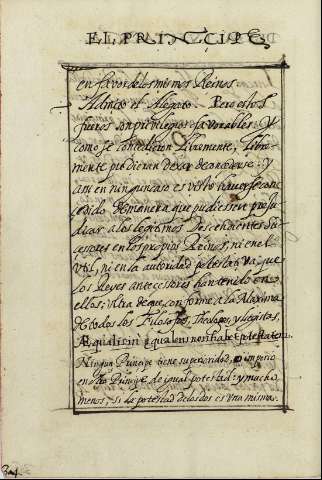 EL PRINCIPE
en favor de los mismos Reinos.
Admito el Alegato. Pero estos
fueros son privilegios favorables: Y
como se concedieron libremente, libre-
mente pudieran dexar de concederse: Y
assi en ningun caso es visto haverse con-
cedido de manera que pudiessen preju-
dicar a los legitimos Descendientes Su-
cesores en los propios Reinos, ni en el
util, ni en la autoridad, potestad, ya que
los Reyes antecesores han tenido en
ellos; ultra de que conforme a la Maxima
de todos los Filosofos, Theologos, y legistas,
Æqualis in æqualem non habet potestatem.
Ningun Principe tiene superioridad, o imperio
en otro Principe de igual potestad: y mucho
menos, si la potestad de los dos es una misma.